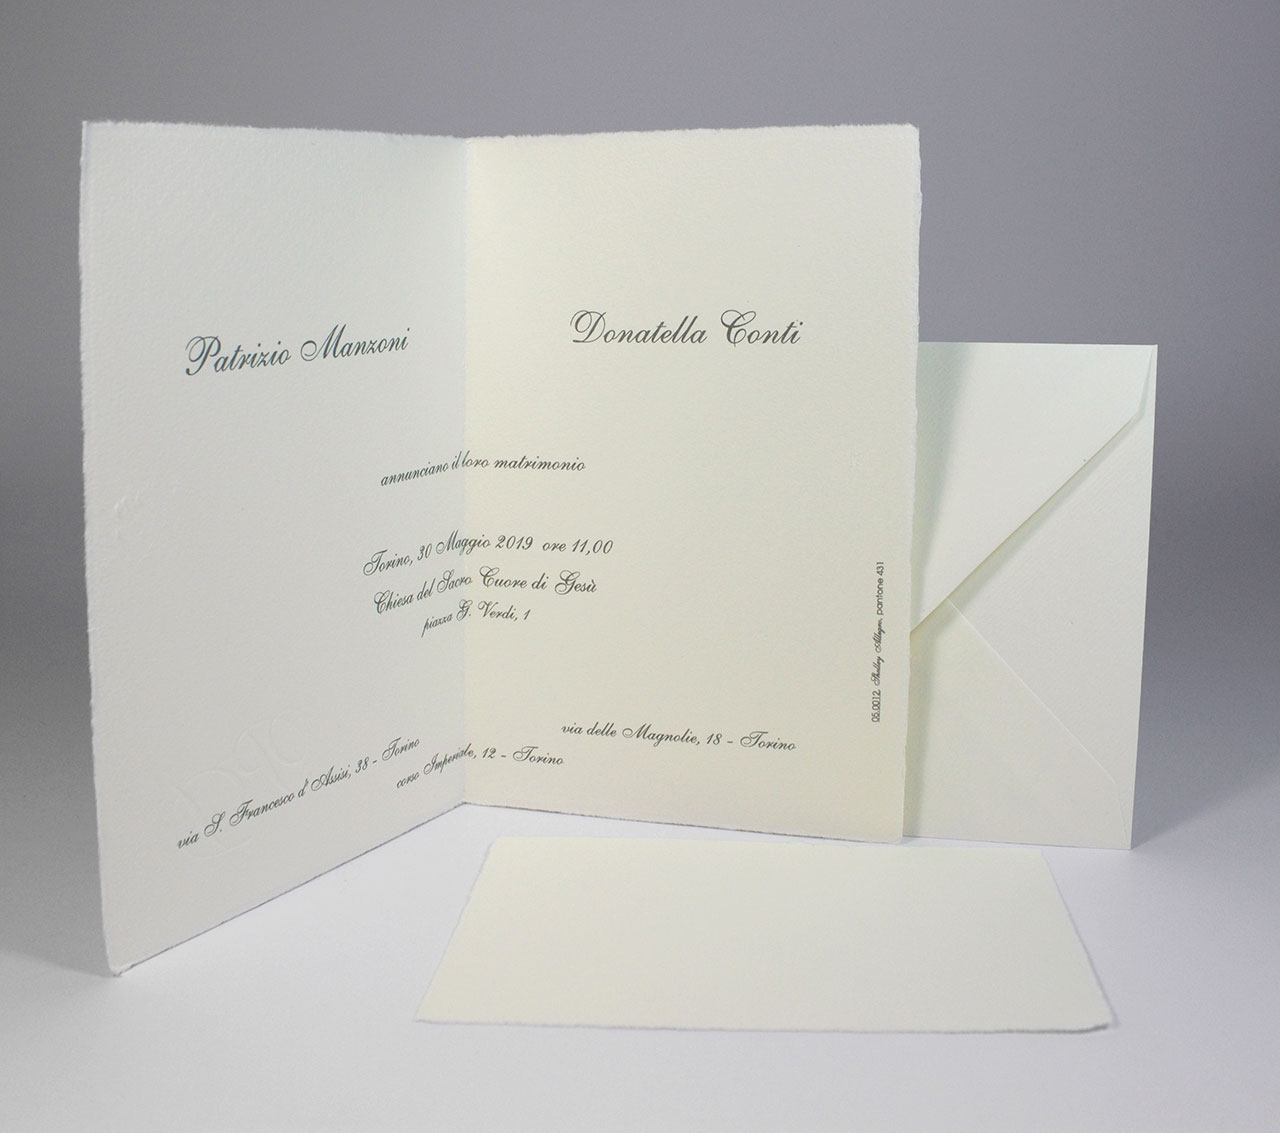 Patrizio Manzoni
Donatella Conti
annunciano il loro matrimonio
Torino, 30 Maggio 2019 ore 11,00
Chiesa del Sacro Cuore di Gesù
piazza G. Verdi, 1
via S. Francesco d' Assisi, 38 - Torino
via delle Magnolie, 18 - Torino
corso Imperiale, 12 - Torino
05.0012 Shelley Allegro, pantone 431